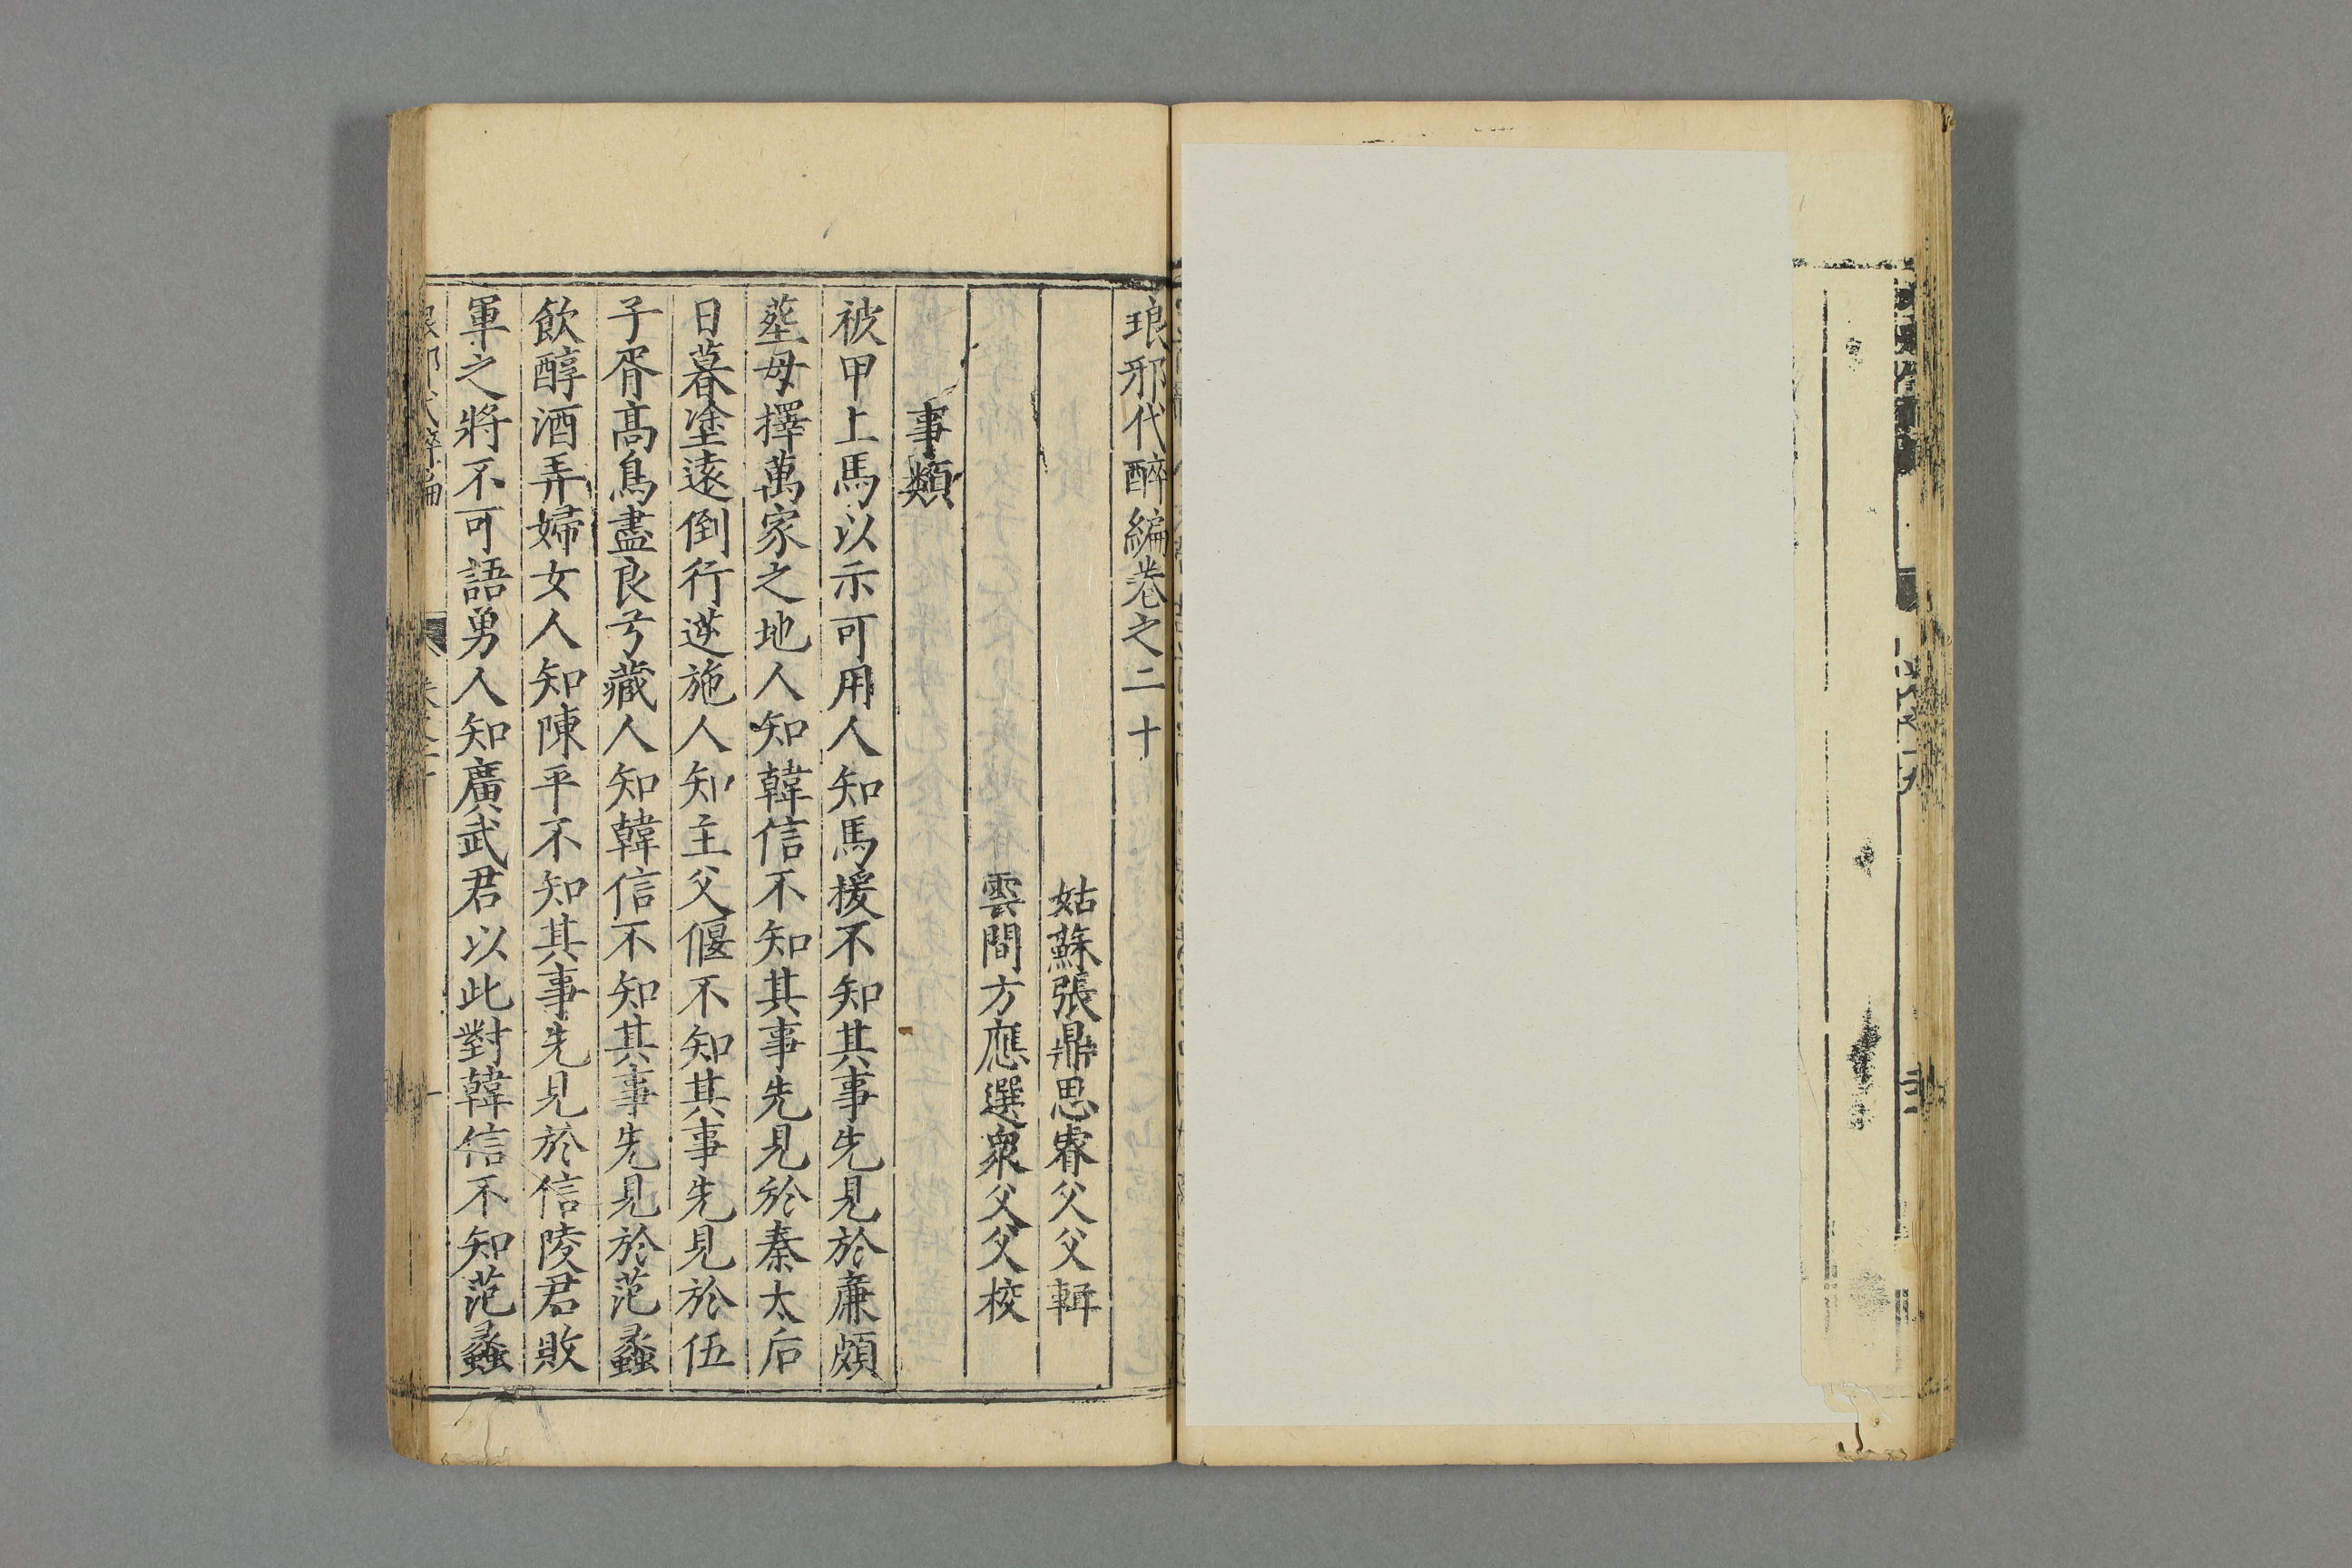 琅邪代醉編卷之二十
姑蘇張鼎思睿父父輯
雲間方應選衆父父校
事類
被甲上馬以示可用人知馬援不知其事先見於廉頗
塟母擇萬家之地人知韓信不知其事先見於秦太后
日暮塗遠倒行逆施人知主父偃不知其事先見於伍
子胥高鳥盡良弓藏人知韓信不知其事先見於范蠡
飲醇酒弄婦女人知陳平不知其事先見於信陵君敗
軍之將不可語勇人知廣武君以此對韓信不知范蠡